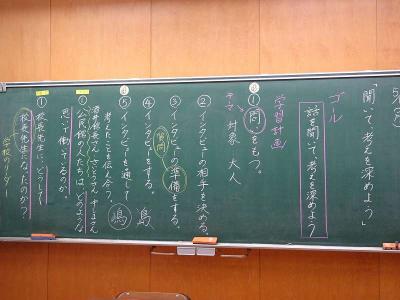 5/
「聞いて、考えを深めよう」
ゴール
話を聞いて、考えを深めよう
学習計画
① 問いをもつ。
テーマ 対象 大人
② インタビューの相手を決める。
③ インタビューの準備をする。
質問
④ インタビューをする。
⑤ インタビューを通して
考えたことを伝え合う。
嶋 島
公民館の人たちは、どのような
思いで働いているのか。
① 校長先生は、どうして
校長先生になったのか?
学校のリーダー